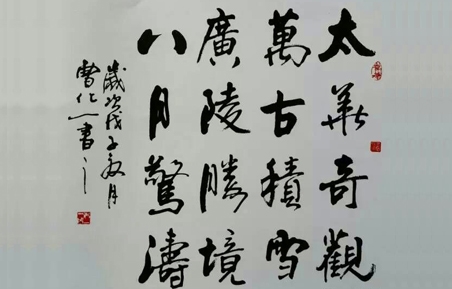 太華奇觀
萬古積雪
廣陵勝境
八月驚濤
歲次戊子敦月
曹化一書之